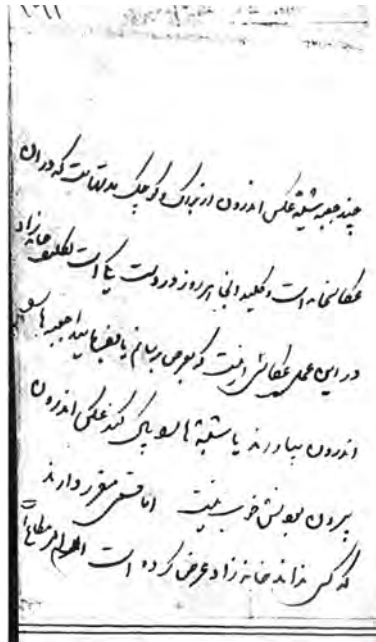 چند جعبه شیشه عکس اندرون از بزرگ و کوچک مدتهاست که در آن
عکاسخانه است و کلید آنجا هر روز در دولت یکا است تکلیف خانه‌زاد
در این عمل عکاسی اینست که بعرض برسانم یا بفرمایید جعبه‌ها را
اندرون بیاورند یا شیشه‌ها را پاک کند عکس اندرون
بیرون بودنش خوب نیست اما قسمی مقرر دارند
که کس نداند خانه‌زاد عرض کرده است الامر مطاع